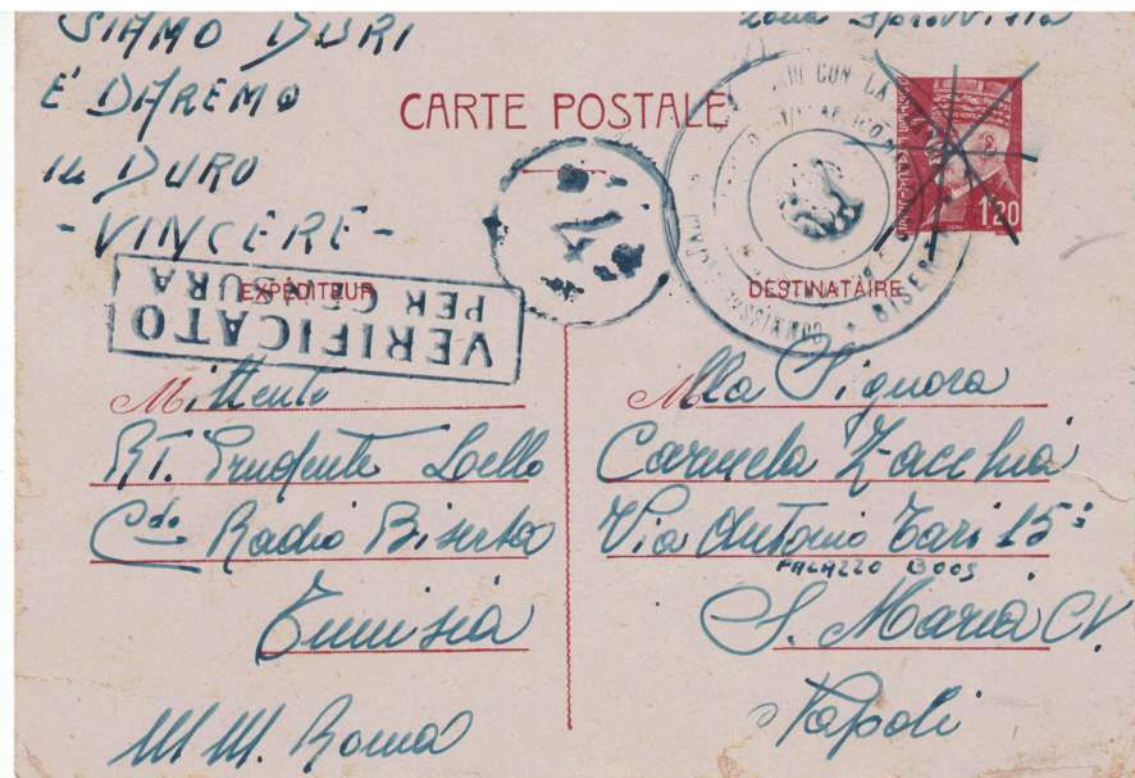 SIAMO DURI
E' DAREMO
IL DURO
- VINCERE -
Zona Sprovvista
CARTE POSTALE
1,20
47
VERIFICATO
PER CENSURA
EXPÉDITEUR
Mittente
RT. Prudente Lello
Cdo Radio Biserta
Tunisia
M M. Roma
CON LA
BISERTA
DESTINATAIRE
Alla Signora
Carmela Zacchia
Via Antonio Tari 15
PALAZZO BOOS
S. Maria C.V.
Napoli